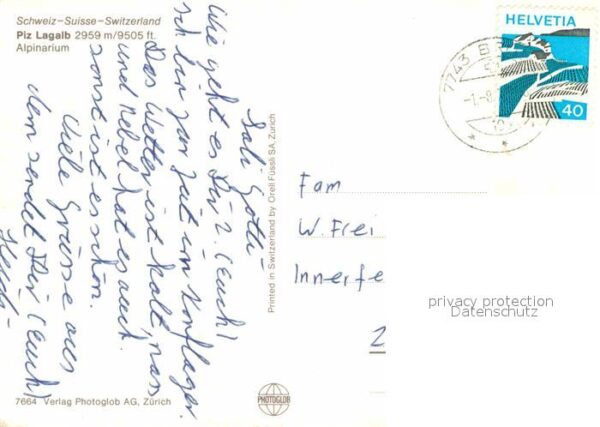 Schweiz–Suisse–Switzerland
Piz Lagalb 2959 m/9505 ft.
Alpinarium
HELVETIA
40
7743 B
Sali Götti
Wie geht es Dir? (Euch)
ich bin zur Zeit im Konflager.
Das Wetter ist kalt, nass
und Nebel hat es auch
sonst ist es schön.
Viele Grüsse aus
dem sendet Dir (Euch)
Printed in Switzerland by Orell Füssli SA, Zurich
Fam
W. Frei
Innerfe
privacy protection
Datenschutz
PHOTOGLOB
7664 Verlag Photoglob AG, Zürich